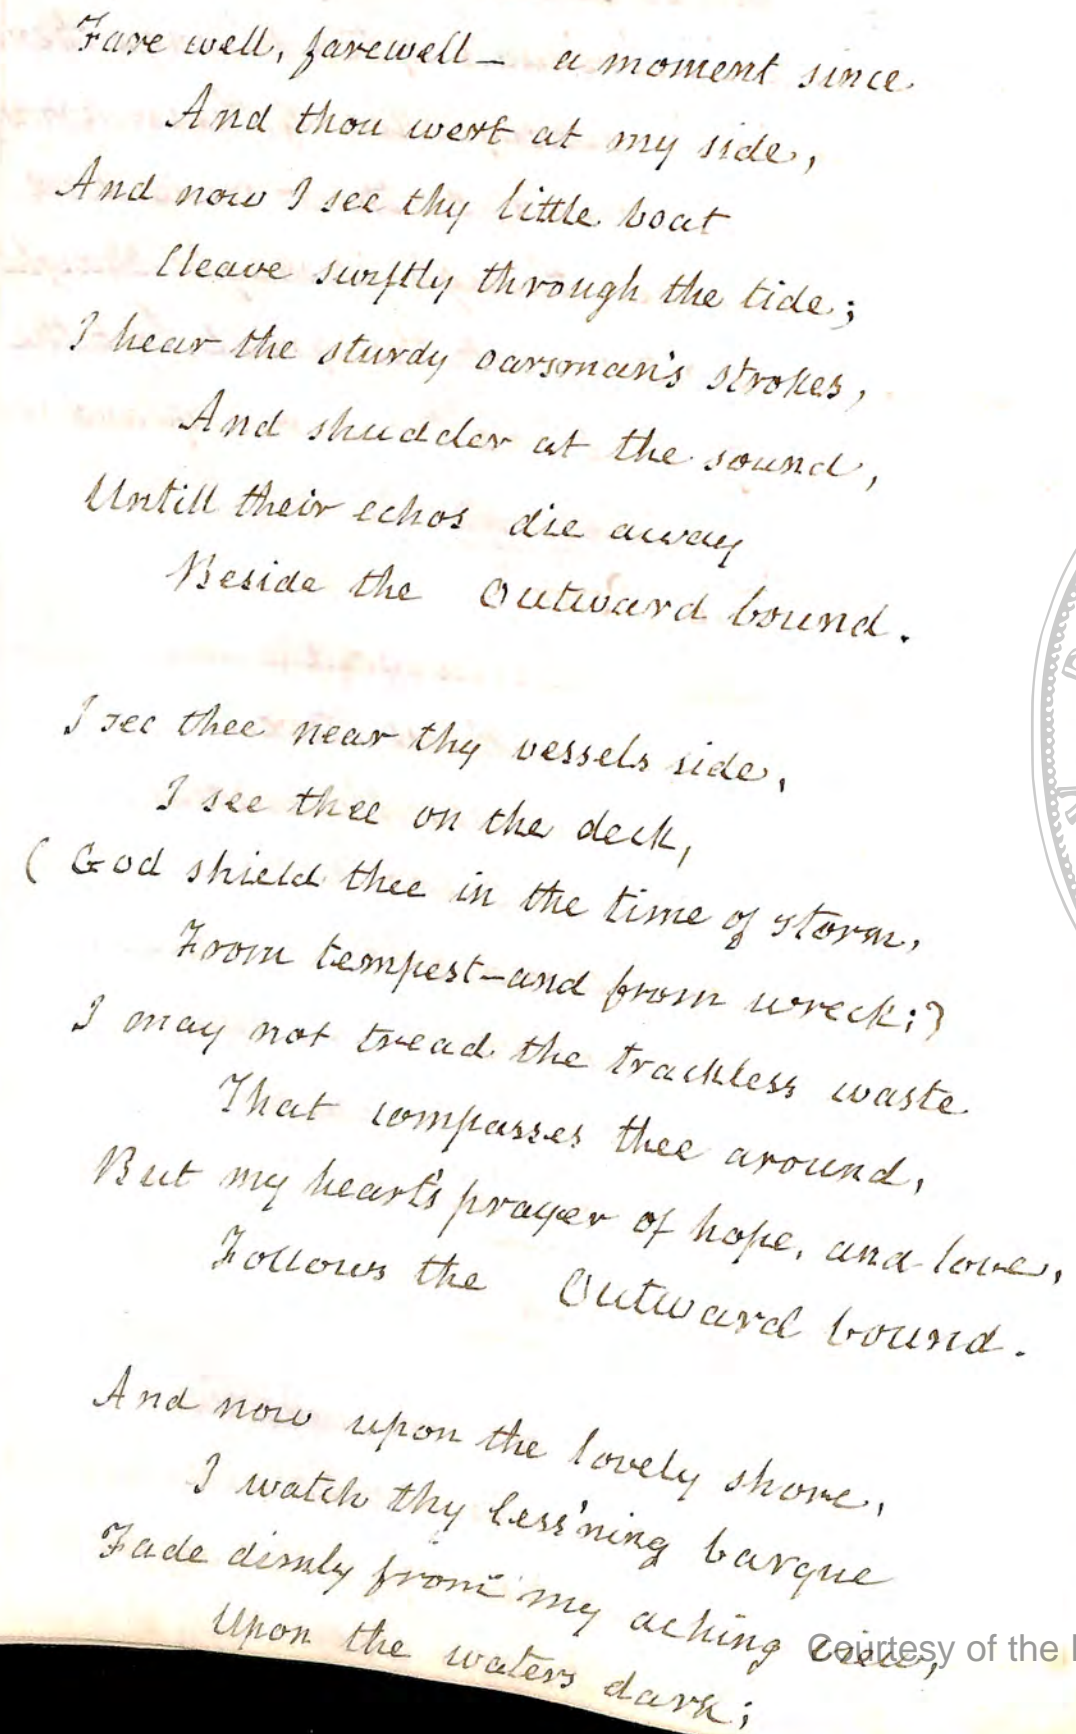 Fare well, farewell — a moment since
And thou wert at my side,
And now I see thy little boat
Cleave swiftly through the tide;
I hear the sturdy oarsman's strokes,
And shudder at the sound,
Untill their echos die away
Beside the Outward bound.
I see thee near thy vessels side,
I see thee on the deck,
( God shield thee in the time of storm,
From tempest—and from wreck;)
I may not tread the trackless waste
That compasses thee around,
But my heart's prayer of hope, and love,
Follows the Outward bound.
And now upon the lovely shore,
I watch thy less'ning barque
Fade dimly from my aching view,
Upon the waters dark;
Courtesy of the